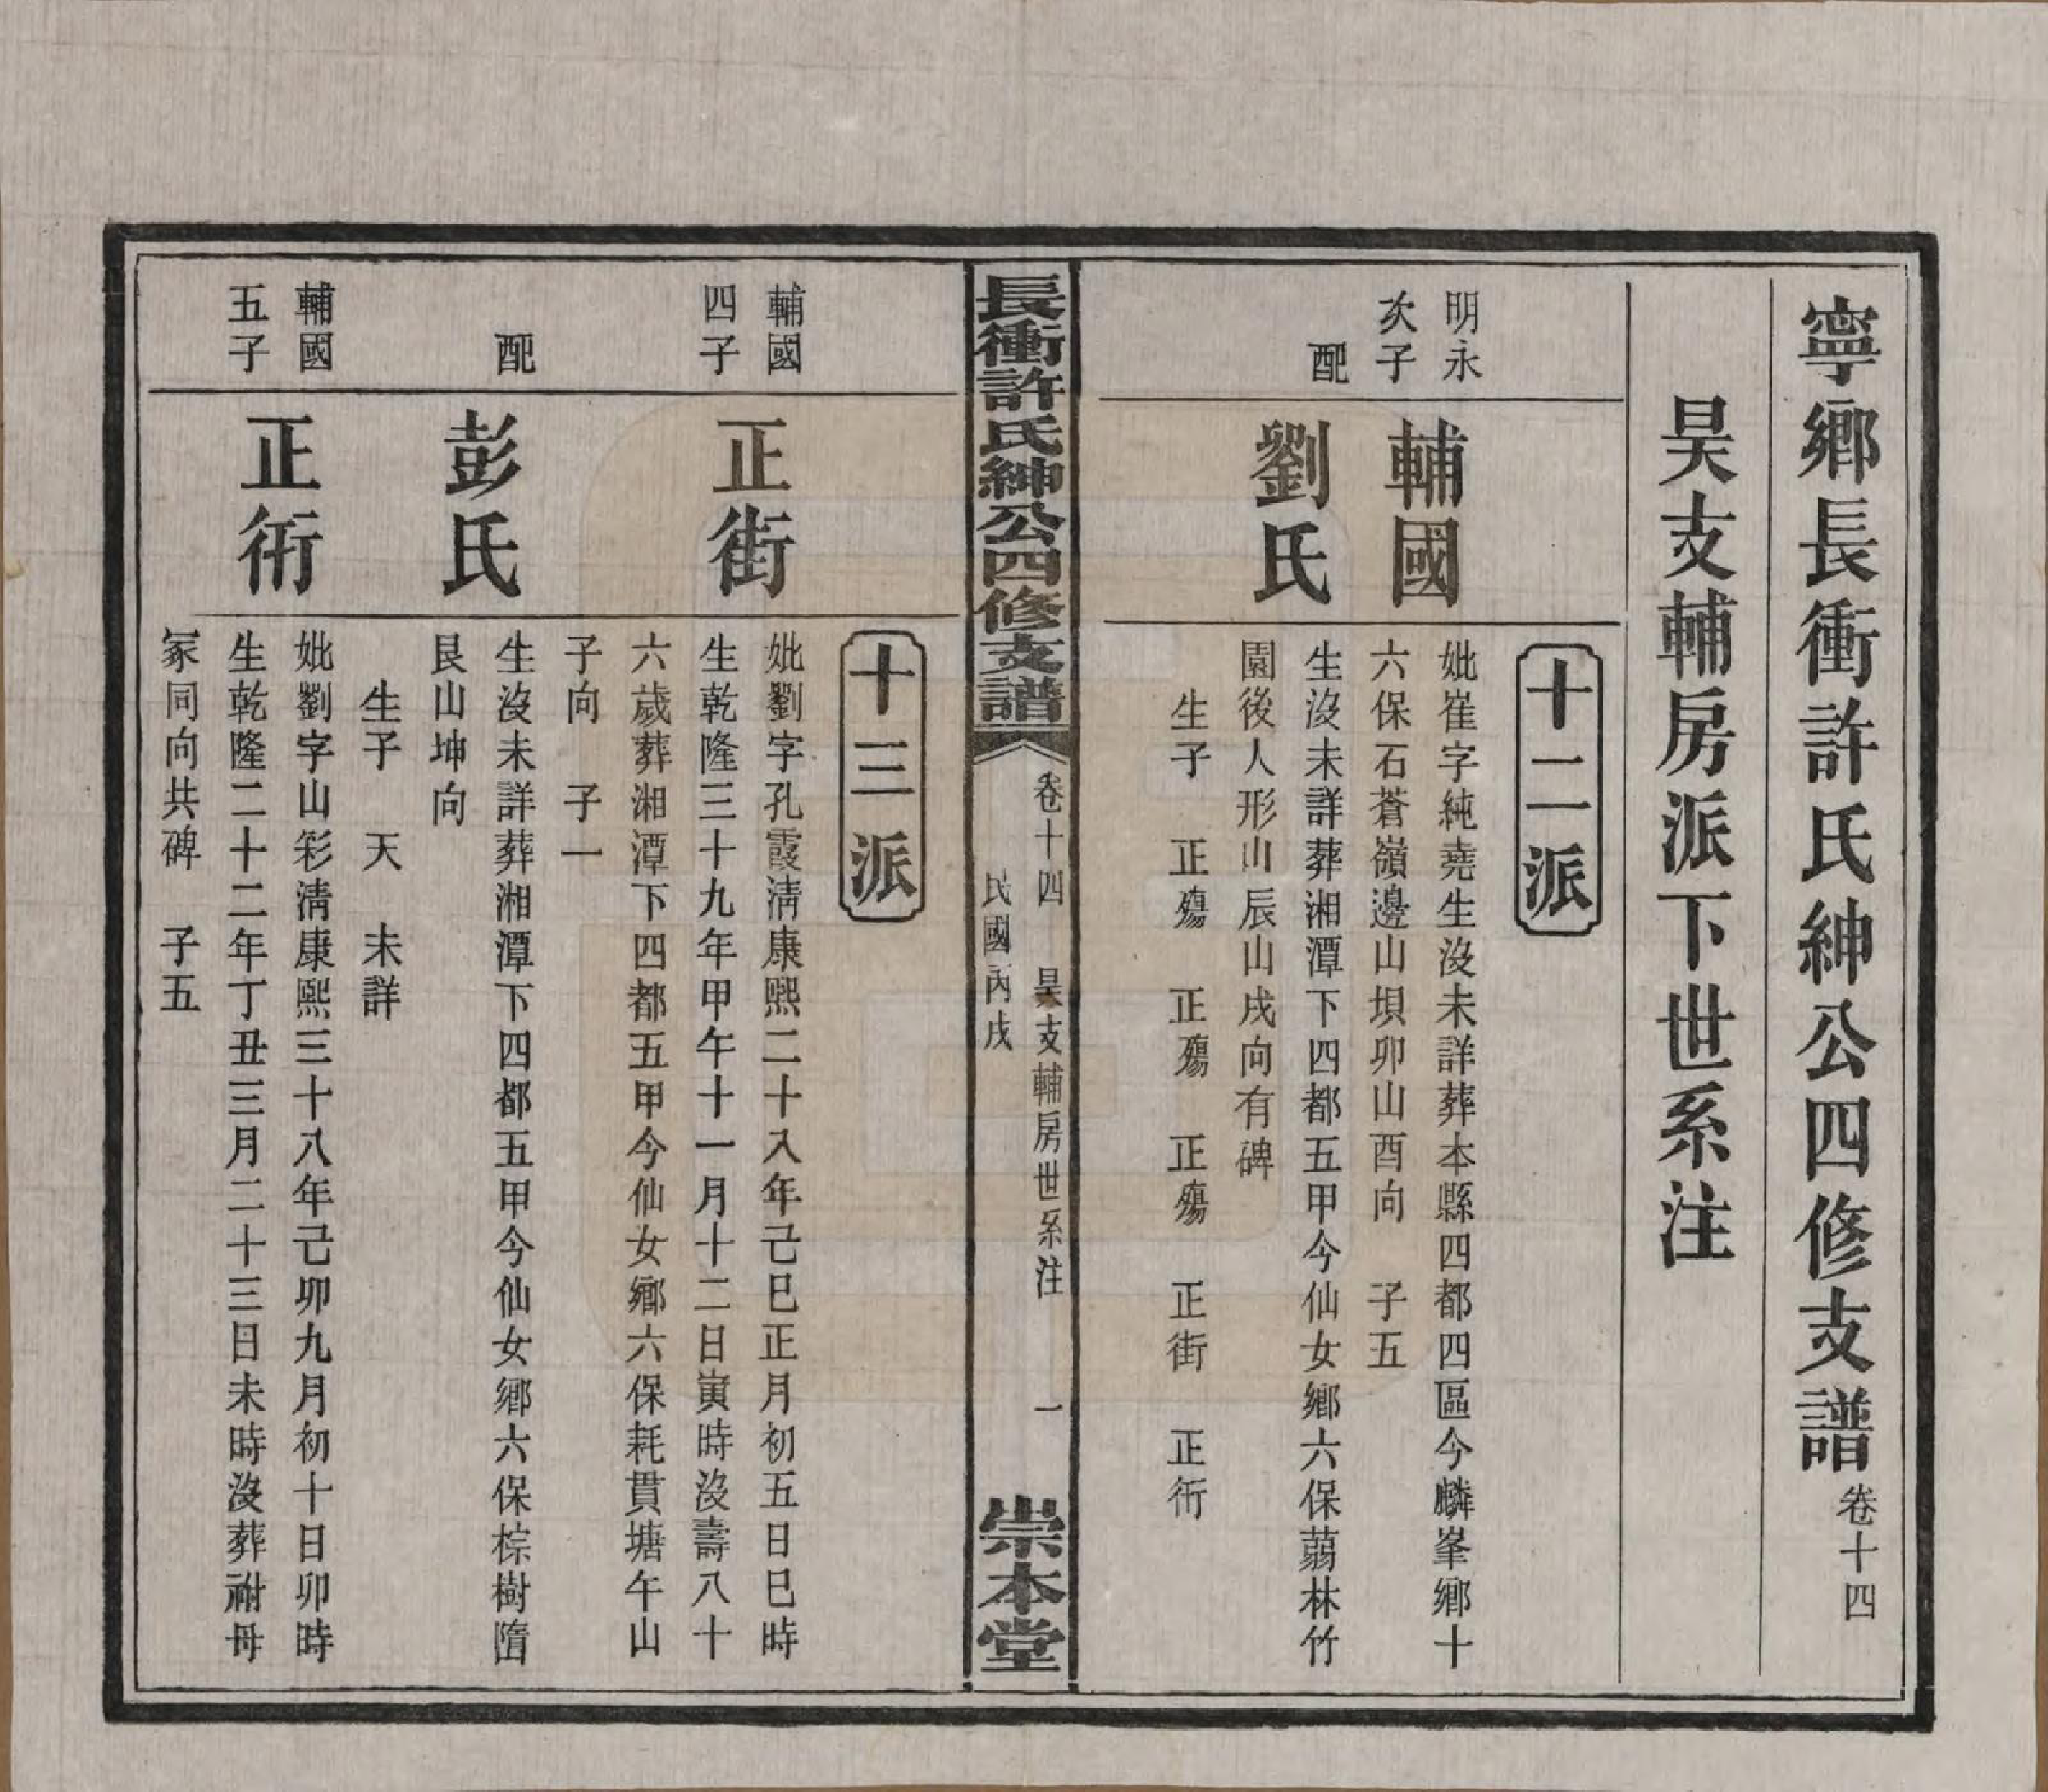 寧鄉長衝許氏紳公四修支譜 卷十四
昊支輔房派下世系注
十二派
明永
次子
輔國
妣崔字純堯生沒未詳葬本縣四都四區今麟峯鄉十
六保石蒼嶺邊山垻卯山酉向 子五
配
劉氏
生沒未詳葬湘潭下四都五甲今仙女鄉六保蒻林竹
園後人形山辰山戌向有碑
生子 正殤 正殤 正殤 正街 正術
長衝許氏紳公四修支譜
卷十四 昊支輔房世系注 一
民國丙戌
崇本堂
十三派
輔國
四子
正街
妣劉字孔霞淸康熙二十八年己巳正月初五日巳時
生乾隆三十九年甲午十一月十二日寅時沒壽八十
六歲葬湘潭下四都五甲今仙女鄉六保耗貫塘午山
子向 子一
配
彭氏
生沒未詳葬湘潭下四都五甲今仙女鄉六保棕樹隋
艮山坤向
生子 天 未詳
輔國
五子
正術
妣劉字山彩淸康熙三十八年己卯九月初十日卯時
生乾隆二十二年丁丑三月二十三日未時沒葬祔母
冢同向共碑 子五